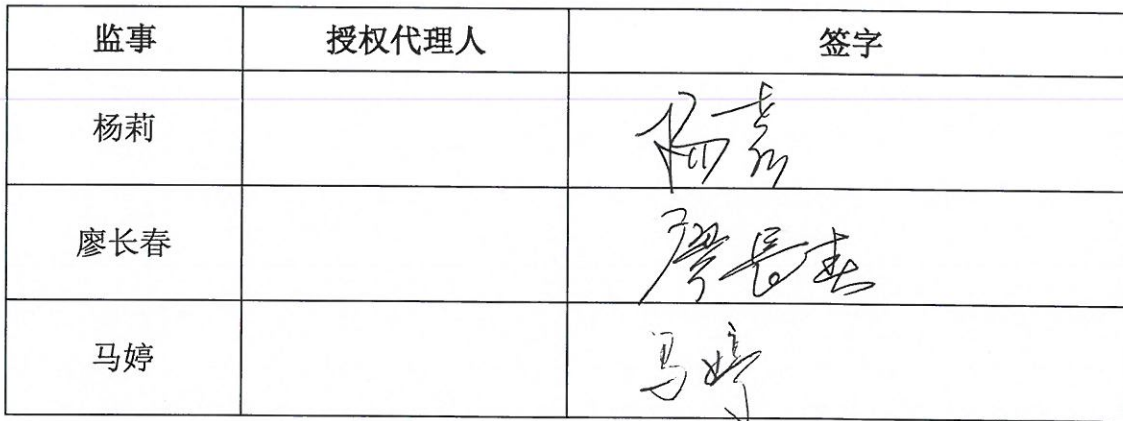 监事 授权代理人 签字
杨莉
廖长春 廖长春
马婷 马婷